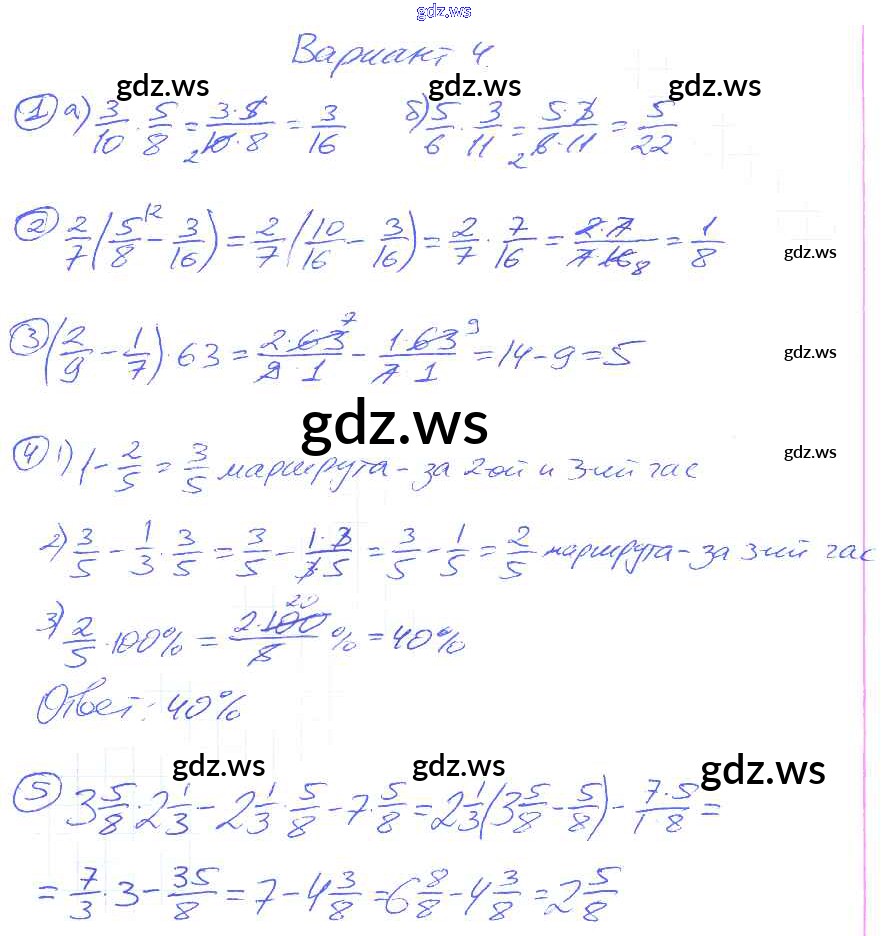 gdz.ws
Вариант 4.
gdz.ws gdz.ws gdz.ws
① а) 3/10 · 5/8 = 3·5/10·8 = 3/16 б) 5/6 · 3/11 = 5·3/6·11 = 5/22
2 2
② 2/7 (5/8 - 3/16) = 2/7 (10/16 - 3/16) = 2/7 · 7/16 = 2·7/7·16 = 1/8
gdz.ws
③ (2/9 - 1/7) · 63 = 2·63/9·1 - 1·63/7·1 = 14 - 9 = 5
gdz.ws
gdz.ws
④ 1) 1 - 2/5 = 3/5 маршрута - за 2ой и 3-ий час
gdz.ws
2) 3/5 - 1/3 · 3/5 = 3/5 - 1·3/3·5 = 3/5 - 1/5 = 2/5 маршрута - за 3-ий час
3) 2/5 · 100% = 2·100/5 % = 40%
Ответ: 40%
gdz.ws gdz.ws gdz.ws
⑤ 3 5/8 · 2 1/3 - 2 1/3 · 5/8 - 7 · 5/8 = 2 1/3 (3 5/8 - 5/8) - 7·5/1·8 =
= 7/3 · 3 - 35/8 = 7 - 4 3/8 = 6 8/8 - 4 3/8 = 2 5/8